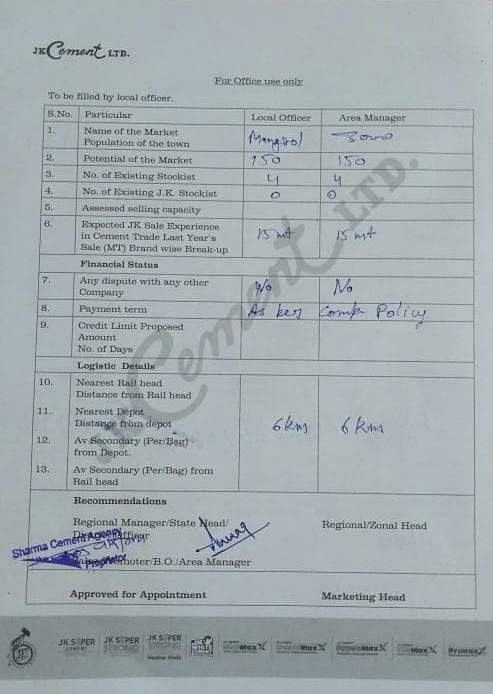 JK Cement LTD.
For Office use only
To be filled by local officer.
S.No. Particular Local Officer Area Manager
1. Name of the Market Mangrol
Population of the town
2. Potential of the Market 150 150
3. No. of Existing Stockist 4 4
4. No. of Existing J.K. Stockist 0 0
5. Assessed selling capacity
6. Expected JK Sale Experience
in Cement Trade Last Year's 15 mt 15 mt
Sale (MT) Brand wise Break-up
Financial Status
7. Any dispute with any other No No
Company
8. Payment term As per Comp Policy
9. Credit Limit Proposed
Amount
No. of Days
Logistic Details
10. Nearest Rail head
Distance from Rail head
11. Nearest Depot
Distance from depot 6 km 6 km
12. Av Secondary (Per/Bag)
from Depot.
13. Av Secondary (Per/Bag) from
Rail head
Recommendations
Regional Manager/State Head/ Regional/Zonal Head
Sharma Cement Agency
Proprietor
/B.O./Area Manager
Approved for Appointment Marketing Head
JK SUPER CEMENT JK SUPER STRONG JK SUPER STRONG Weather Shield JK White Cement WallMaxX ShieldMaxX GypsoMaxX TileMaxX PrimaxX
JK Cement LTD.